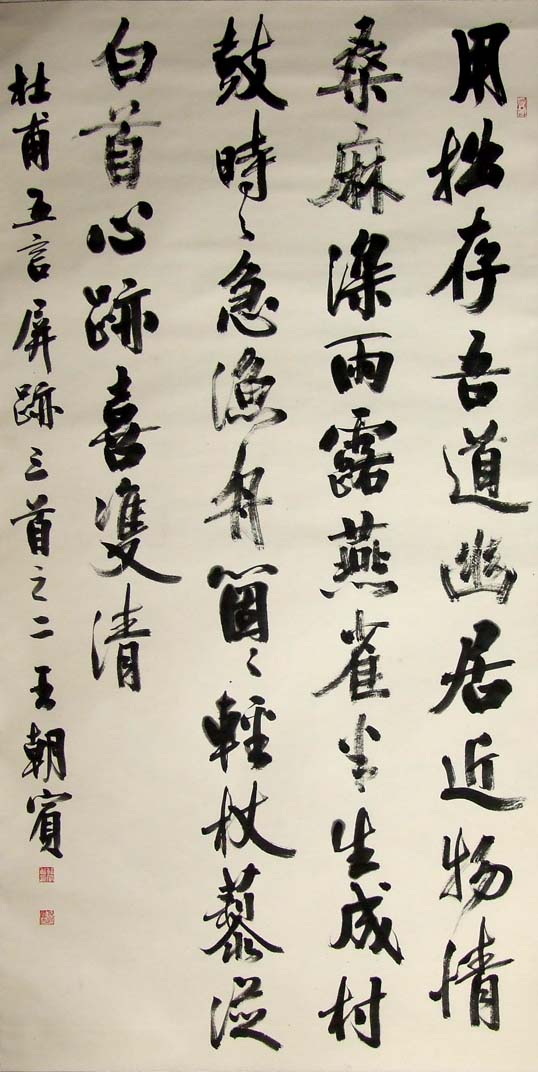 用拙存吾道幽居近物情
桑麻深雨露燕雀半生成村
鼓時々急漁舟箇々輕杖藜從
白首心跡喜雙清
杜甫五言屏跡三首之二王朝賓